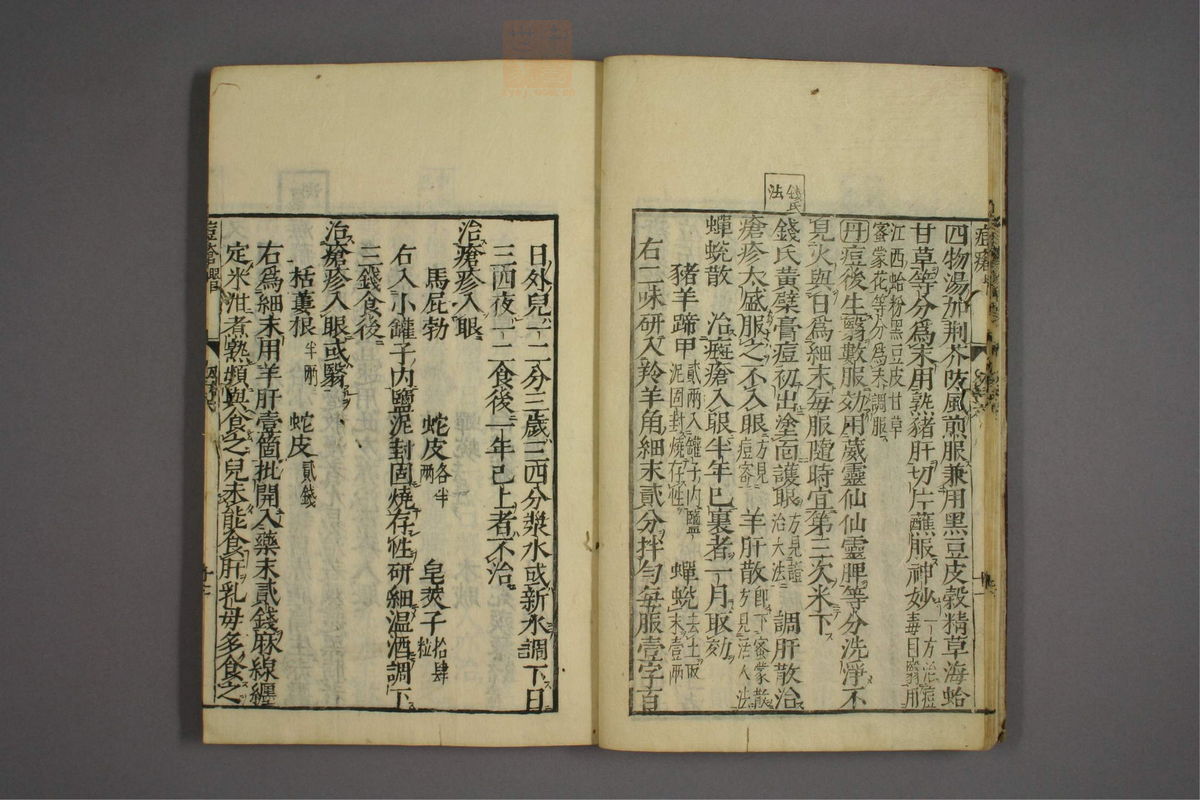 錢氏
法
四物湯加荆芥防風煎服兼用黑豆皮穀精草海蛤
甘草等分爲末用熟豬肝切片蘸服神妙一方治痘毒目翳用
江西蛤粉黑豆皮甘草
蜜蒙花等分爲末調服
丹痘後生翳數服効用葳靈仙仙靈脾等分洗淨不
見火與日爲細末每服隨時宜第三次米下
錢氏黃檗膏痘初出塗面護眼方見證治大法 調肝散治
瘡疹太盛服之不入眼方見痘 羊肝散即下蜜蒙散方見治人法
蟬蛻散 治癍瘡入眼半年已裏者一月取効
豬羊蹄甲貳兩入罐子内鹽泥固封燒存性 蟬蛻去土取末壹兩
右二味研入羚羊角細末貳分拌勻每服壹字百
日外兒一二分三歲三四分漿水或新水調下日
三四夜一二食後一年已上者不治
治瘡疹入眼
馬屁勃 蛇皮各半兩 皂莢子拾肆粒
右入小罐子内鹽泥封固燒存性研細温酒調下
三錢食後
治瘡疹入眼或翳
栝蔞根半兩 蛇皮貳錢
右爲細末用羊肝壹箇批開入藥末貳錢麻線纏
定米泔煮熟頻與食之兒未能食肝乳母多食之